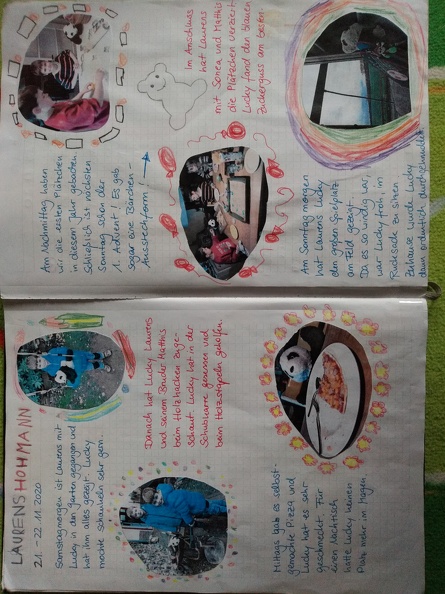 LAURENS HOHMANN
21. - 22.11.2020
Samstagmorgen ist Laurens mit
Lucky in den Garten gegangen und
hat ihm alles gezeigt. Lucky
mochte schaukeln sehr gern.
Danach hat Lucky Laurens
und seinem Bruder Matthis
beim Holzhacken zuge-
schaut. Lucky hat in der
Schubkarre gesessen und
beim Holzstapeln geholfen.
Mittags gab es selbst-
gemachte Pizza und
Lucky hat es sehr
geschmeckt. Für
einen Nachtisch
hatte Lucky keinen
Platz mehr im Magen.
Am Nachmittag haben
wir die ersten Plätzchen
in diesem Jahr gebacken,
schließlich ist nächsten
Sonntag schon der
1. Advent! Es gab
sogar eine Bärchen-
Ausstechform!
Im Anschluss
hat Laurens
mit Sonea und Matthis
die Plätzchen verziert.
Lucky fand den blauen
Zuckerguss am besten.
Am Sonntag morgen
hat Laurens Lucky
den großen Spielplatz
am Feld gezeigt.
Da es so windig war,
war Lucky froh, im
Rucksack zu sitzen.
Zuhause wurde Lucky
dann ordentlich durchgeknuddelt.